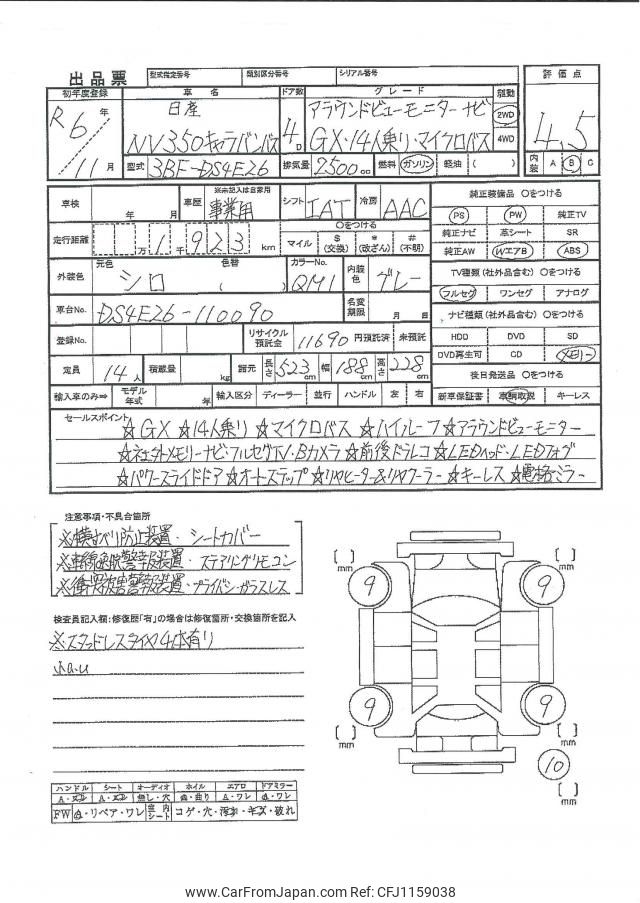 出品票 型式指定番号 類別区分番号 シリアル番号
初年度登録 車名 ドア数 グレード 駆動 評価点
R6年 日産 4D アラウンドビューモニター ナビ 2WD 4.5
11月 NV350キャラバンバス GX・14人乗り・マイクロバス 4WD
型式 3BF-DS4E26 排気量 2500cc 燃料 ガソリン 軽油 ( ) 内装 A B C
車検 年 月 車歴 ※未記入は自家用 事業用 シフト IAT 冷房 AAC 純正装備品 ○をつける
PS PW 純正TV
走行距離 万 1千 923 km ○をつける マイル $(交換) *(改ざん) #(不明) 純正ナビ 革シート SR
純正AW WエアB ABS
外装色 元色 シロ 色替 ( ) カラーNo. QM1 内装色 グレー TV種類(社外品含む) ○をつける
フルセグ ワンセグ アナログ
車台No. DS4E26-110090 名変期限 月 日 ナビ種類(社外品含む) ○をつける
登録No. リサイクル預託金 11690 円預託済 未預託 HDD DVD SD
DVD再生可 CD メモリー
定員 14人 積載量 kg 諸元 長さ 523cm 幅 188cm 高さ 228cm 後日発送品 ○をつける
輸入車のみ⇒ モデル年式 年 輸入区分 ディーラー 並行 ハンドル 左 右 新車保証書 車輌取説 キーレス
セールスポイント
☆GX ☆14人乗り ☆マイクロバス ☆ハイルーフ ☆アラウンドビューモニター
☆ネェ メモリーナビ・フルセグTV・Bカメラ ☆前後ドラレコ ☆LEDヘッド・LEDフォグ
☆パワースライドドア ☆オートステップ ☆リヤヒーター&リヤクーラー ☆キーレス ☆電格ミラー
注意事項・不具合箇所
※横すべり防止装置・シートカバー
※車線逸脱警報装置・ステアリングリモコン
※衝突被害警報装置・プライバシーガラスレス
検査員記入欄:修復歴「有」の場合は修復箇所・交換箇所を記入
※スタッドレスタイヤ4本有り
[ ] mm 9 9 [ ] mm
[ ] mm 9 9 [ ] mm
10
[ ] mm
ハンドル シート オーディオ ホイル エアロ ドアミラー
A・スレ A・スレ 無し・穴 曲り A・ワレ A・ワレ
FW A・リペア・ワレ 室内シート コゲ・穴・汚れ・キズ・破れ
www.CarFromJapan.com Ref: CFJ1159038